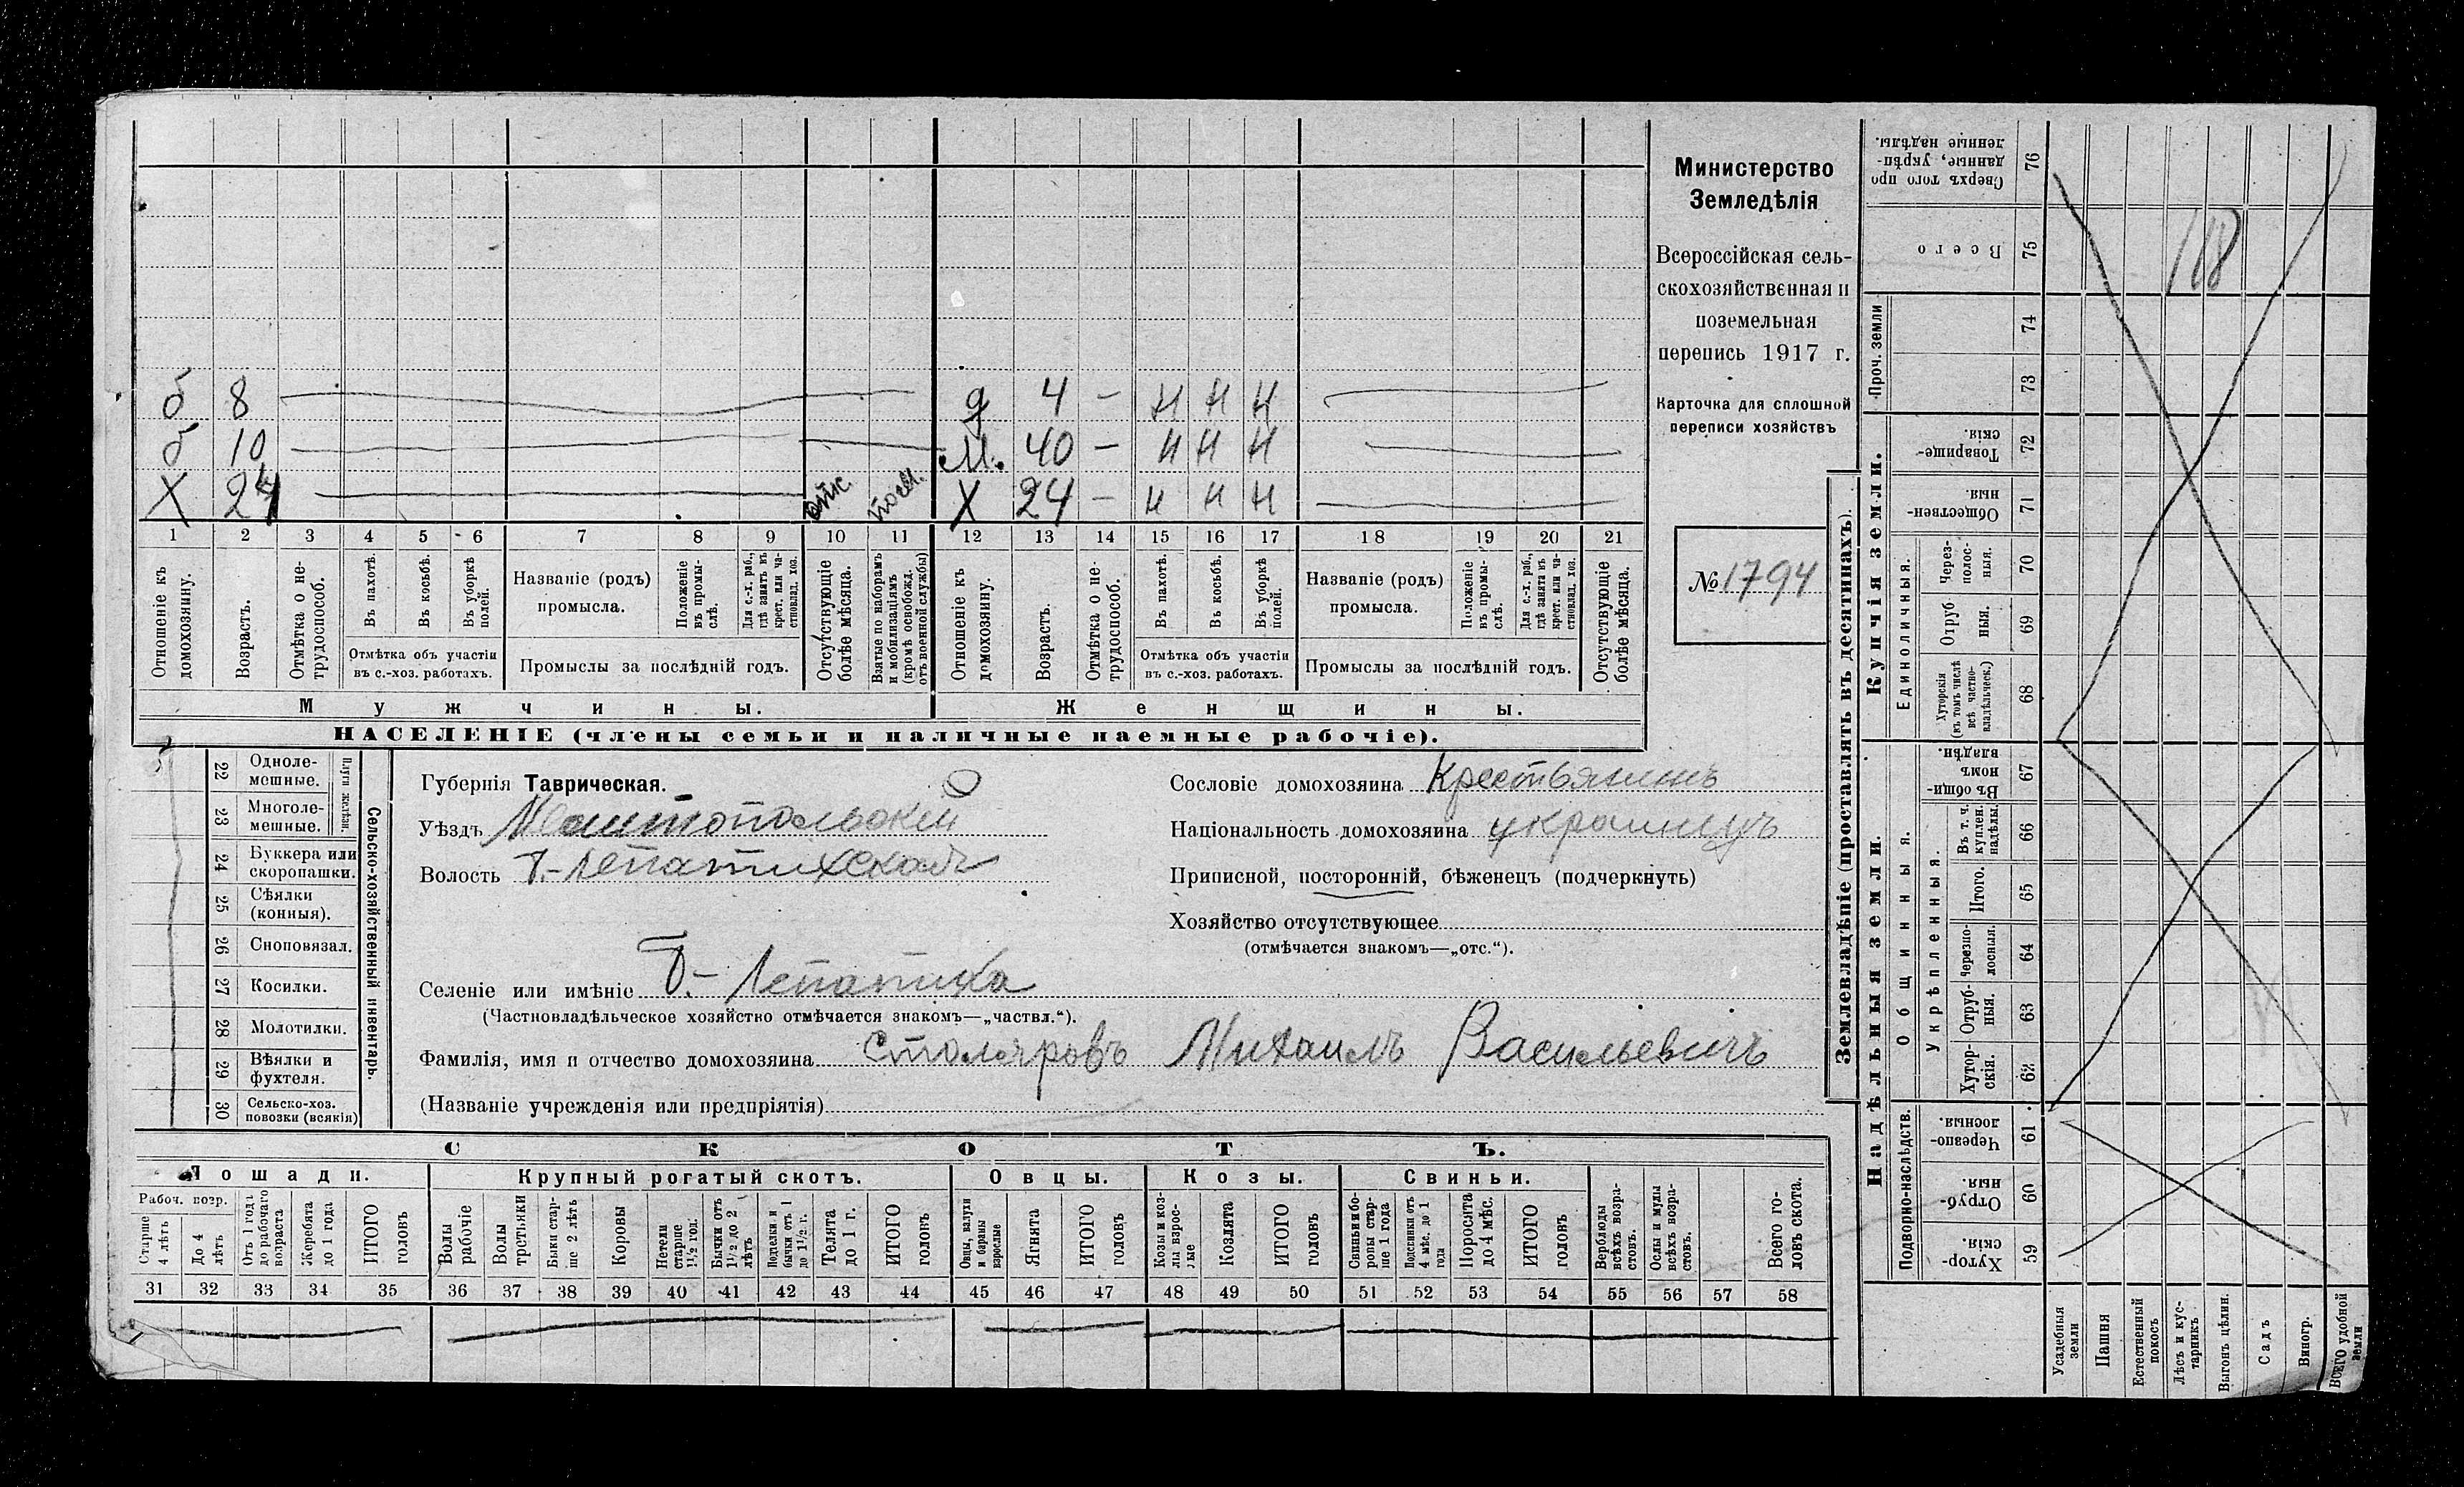 б 8 д 4 — н н н
б 10 м. 40 — н н н
Х 24 отс. Х 24 — н н н
1 2 3 4 5 6 7 8 9 10 11 12 13 14 15 16 17 18 19 20 21
Отношеніе къ домохозяину.
Возрастъ.
Отмѣтка о не-
трудоспособ.
Въ пахотѣ.
Въ косьбѣ.
Въ уборкѣ полей.
Отмѣтка объ участіи
въ с.-хоз. работахъ.
Названіе (родъ)
промысла.
Положеніе въ промы-
слѣ.
Для с.-х. раб.,
гдѣ занятъ въ
крест. или ча-
стновлад. хоз.
Промыслы за послѣдній годъ.
Отсутствующіе
болѣе мѣсяца.
Взятые по наборамъ
и мобилизаціямъ
(кромѣ освобожд.
отъ военной службы)
Отношеніе къ
домохозяину.
Возрастъ.
Отмѣтка о не-
трудоспособ.
Въ пахотѣ.
Въ косьбѣ.
Въ уборкѣ
полей.
Отмѣтка объ участіи
въ с.-хоз. работахъ.
Названіе (родъ)
промысла.
Положеніе
въ промы-
слѣ.
Для с.-х. раб.,
гдѣ занята въ
крест. или ча-
стновлад. хоз.
Промыслы за послѣдній годъ.
Отсутствующіе
болѣе мѣсяца.
Мужчины. Женщины.
НАСЕЛЕНІЕ (члены семьи и наличные наемные рабочіе).
Министерство
Земледѣлія
Всероссійская сель-
скохозяйственная и
поземельная
перепись 1917 г.
Карточка для сплошной
переписи хозяйствъ
№ 1794
22 Одноле-
мешные.
23 Многоле-
мешные.
Плуги желѣзн.
24 Буккера или
скоропашки.
25 Сѣялки
(конныя).
26 Сноповязал.
27 Косилки.
28 Молотилки.
29 Вѣялки и
фухтеля.
30 Сельско-хоз.
повозки (всякія)
Сельско-хозяйственный инвентарь.
Губернія Таврическая.
Уѣздъ Мелитопольскій
Волость Б.-Лепатихская
Селеніе или имѣніе Б.- Лепатиха
(Частновладѣльческое хозяйство отмѣчается знакомъ—„частвл.“).
Фамилія, имя и отчество домохозяина Столяровъ Михаилъ Васильевичъ
(Названіе учрежденія или предпріятія)
Сословіе домохозяина Крестьянинъ
Національность домохозяина украинцъ
Приписной, посторонній, бѣженецъ (подчеркнуть)
Хозяйство отсутствующее
(отмѣчается знакомъ—„отс.“).
СКОТЪ.
Лошади. Крупный рогатый скотъ. Овцы. Козы. Свиньи.
Рабоч. возр.
Старше
4 лѣтъ
До 4
лѣтъ
Отъ 1 года
до рабочаго
возраста
Жеребята
до 1 года
ИТОГО
головъ
Волы
рабочіе
Волы
третьяки
Быки стар-
ше 2 лѣтъ
Коровы
Нетели
старше
1½ год.
Бычки отъ
1½ до 2
лѣтъ
Подтелки и
бычки отъ 1
до 1½ г.
Телята
до 1 г.
ИТОГО
головъ
Овцы, валухи
и бараны
взрослые
Ягнята
ИТОГО
головъ
Козы и коз-
лы взрос-
лые
Козлята
ИТОГО
головъ
Свиньи и бо-
ровы стар-
ше 1 года
Подсвинки отъ
4 мѣс. до 1
года
Поросята
до 4 мѣс.
ИТОГО
головъ
Верблюды
всѣхъ возра-
стовъ.
Ослы и мулы
всѣхъ возра-
стовъ.
Всего го-
ловъ скота.
31 32 33 34 35 36 37 38 39 40 41 42 43 44 45 46 47 48 49 50 51 52 53 54 55 56 57 58
Землевладѣніе (проставлять въ десятинахъ).
Надѣльныя земли. Купчія земли. Проч. земли
Подворно-наслѣдств.
Общинныя.
Укрѣпленныя.
Единоличныя.
Сверхъ того про
данные, укрѣп-
ленные надѣлы. 76
Всего 75
74
73
Товарище-
скія. 72
Обществен-
ныя. 71
Через-
полос-
ныя. 70
Отруб
ныя. 69
Хуторскія
(въ томъ числѣ
всѣ частно-
владѣльческ.) 68
Въ общи-
номъ
владѣн. 67
Въ т. ч.
куплен.
надѣлы. 66
Итого. 65
Черезпо-
лосныя. 64
Отруб-
ныя. 63
Хутор-
скія. 62
Черезпо-
лосныя. 61
Отруб-
ныя. 60
Хутор-
скія. 59
168
Усадебныя
земли
Пашня
Естественный
покосъ
Лѣсъ и кус-
тарникъ
Выгонъ цѣлин.
Садъ
Виногр.
ВСЕГО удобной
земли